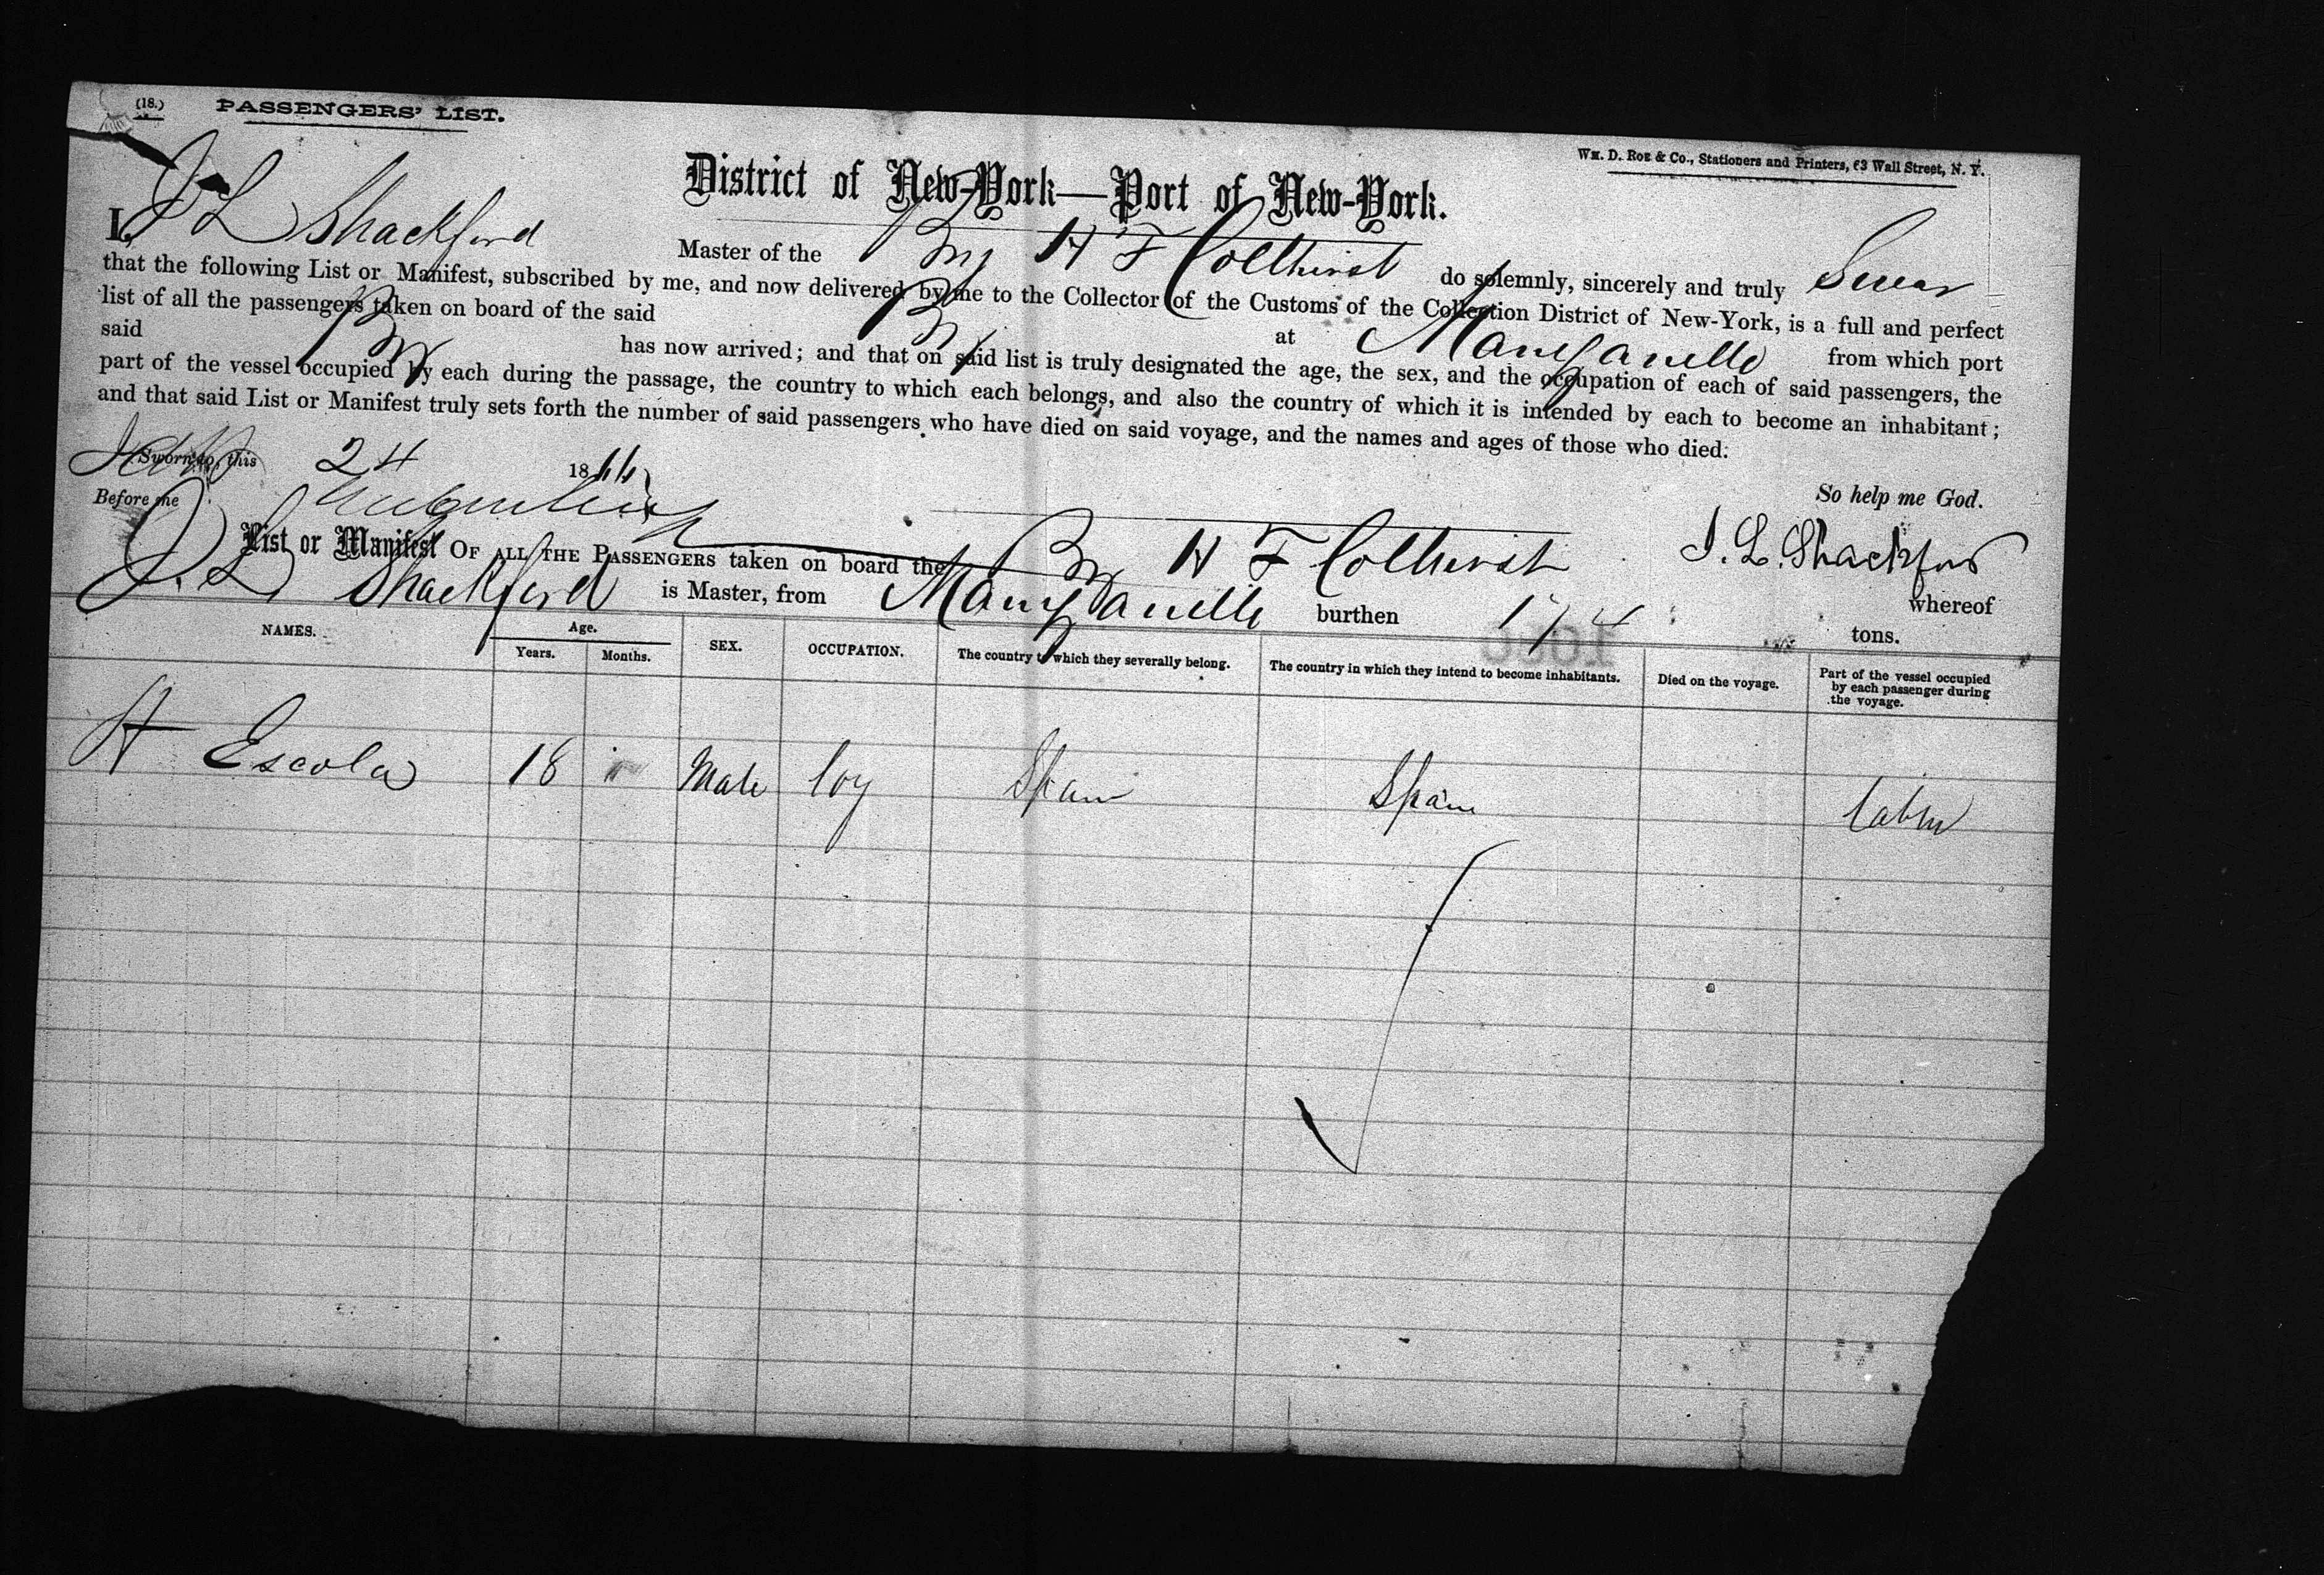 (18.) PASSENGERS' LIST.
Wm. D. Roe & Co., Stationers and Printers, 63 Wall Street, N. Y.
District of New-York—Port of New-York.
I, J L Shackford Master of the Brig H F Colthirst do solemnly, sincerely and truly Swear
that the following List or Manifest, subscribed by me, and now delivered by me to the Collector of the Customs of the Collection District of New-York, is a full and perfect
list of all the passengers taken on board of the said Brig at Manzanello from which port
said Brig has now arrived; and that on said list is truly designated the age, the sex, and the occupation of each of said passengers, the
part of the vessel occupied by each during the passage, the country to which each belongs, and also the country of which it is intended by each to become an inhabitant;
and that said List or Manifest truly sets forth the number of said passengers who have died on said voyage, and the names and ages of those who died.
So help me God.
Sworn to, this 24 1866
Before me
J. L. Shackford
List or Manifest OF ALL THE PASSENGERS taken on board the Brig H F Colthirst whereof
J. L. Shackford is Master, from Manzanello burthen 174 tons.
NAMES. Age. Years. Months. SEX. OCCUPATION. The country to which they severally belong. The country in which they intend to become inhabitants. Died on the voyage. Part of the vessel occupied by each passenger during the voyage.
H Escola 18 Male Spain Spain Cabin